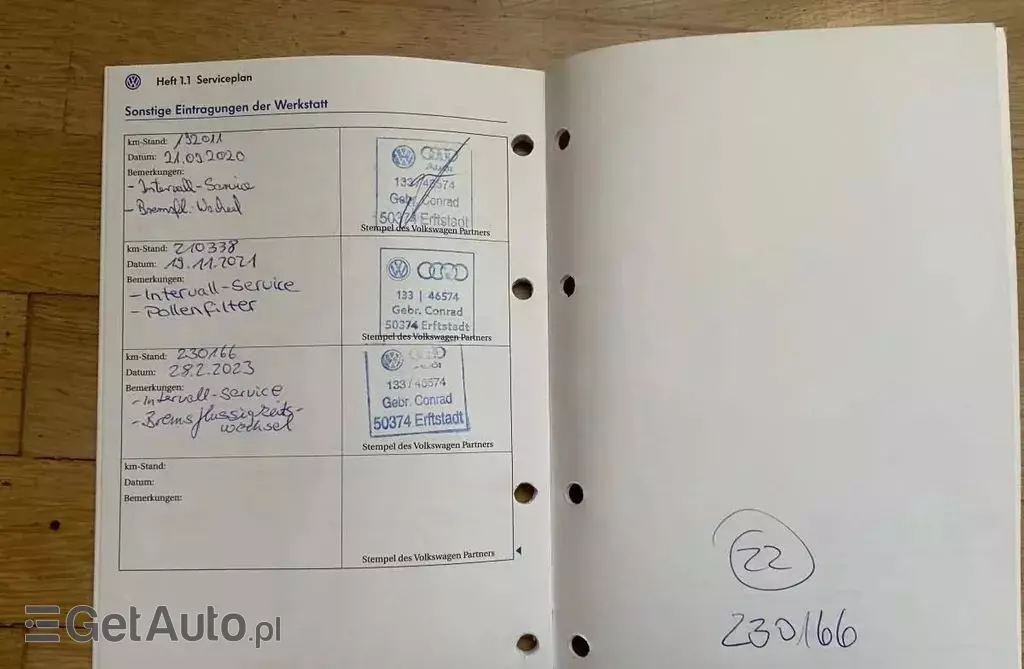 Heft 1.1 Serviceplan
Sonstige Eintragungen der Werkstatt
km-Stand: 192011
Datum: 21.09.2020
Bemerkungen:
- Intervall-Service
- Bremsfl.-Wechsel
Audi
133/46574
Gebr. Conrad
50374 Erftstadt
Stempel des Volkswagen Partners
km-Stand: 210338
Datum: 19.11.2021
Bemerkungen:
- Intervall-Service
- Pollenfilter
133 | 46574
Gebr. Conrad
50374 Erftstadt
Stempel des Volkswagen Partners
km-Stand: 230166
Datum: 28.2.2023
Bemerkungen:
- Intervall-Service
- Bremsflüssigkeits-
wechsel
Audi
133/46574
Gebr. Conrad
50374 Erftstadt
Stempel des Volkswagen Partners
km-Stand:
Datum:
Bemerkungen:
Stempel des Volkswagen Partners
22
230166
GetAuto.pl